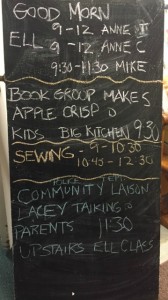 GOOD MORN
9-12 ANNE J
ELL 9-12 ANNE C
9:30-11:30 MIKE
BOOK GROUP MAKES
APPLE CRISP
KIDS BIG KITCHEN 9:30
SEWING - 9-10:30
10:45-12:30
COMMUNITY LIAISON
LACEY TALKING
PARENTS 11:30
UPSTAIRS ELL CLASS